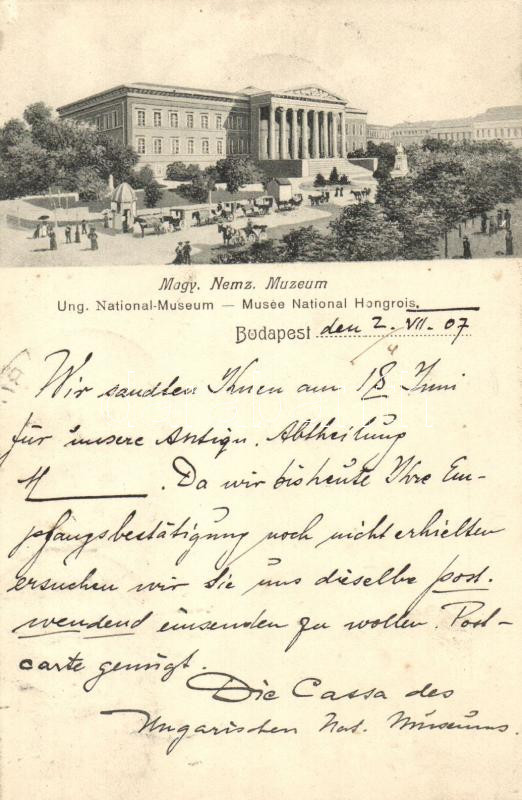 Magy. Nemz. Muzeum
Ung. National-Museum — Musée National Hongrois
Budapest den 2. VII. 07
Wir sandten Ihnen am 18 Juni
für unsere Antiqu. Abtheilung
. Da wir bis heute Ihre Em-
pfangsbestätigung noch nicht erhielten
ersuchen wir Sie uns dieselbe post-
wendend einsenden zu wollen. Post-
carte genügt.
Die Cassa des
Ungarischen Nat. Museums.